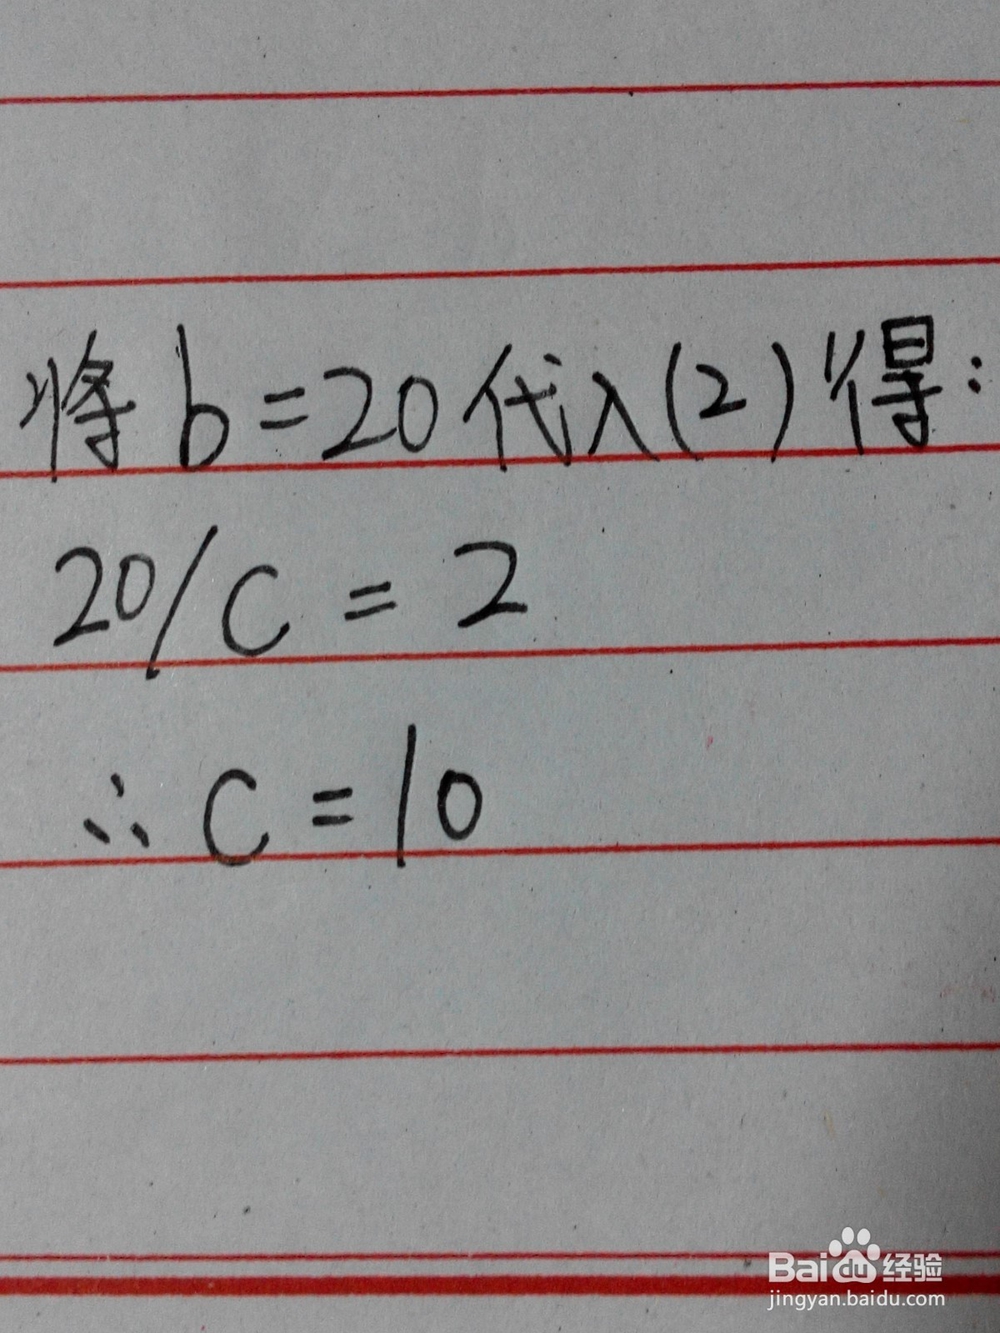 将b=20代入(2)得:
20/C=2
∴C=10
Baidu经验
jingyan.baidu.com